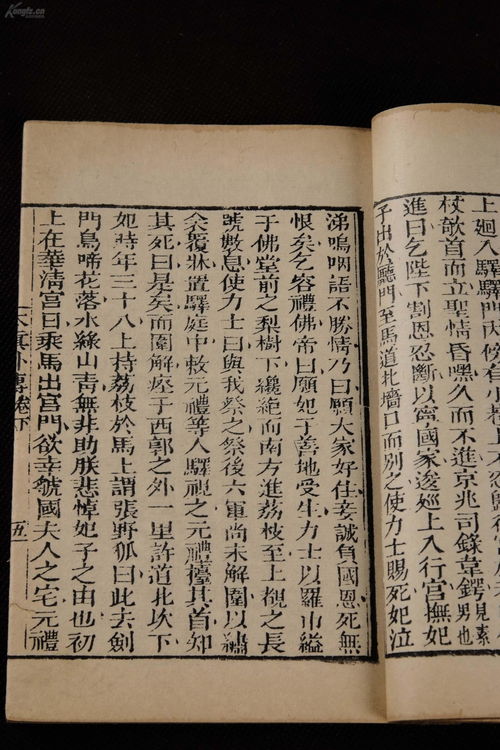 上廻入驛驛門內倚有小巷上不忍
杖欹首而立聖情昏嘿久而不進京兆司錄韋鍔見素
進曰乞陛下割恩忍斷以寧國家逡巡上入行宮撫妃
子出於廳門至馬道北墻口而別之使力士賜死妃泣
涕嗚咽語不勝情乃曰願大家好住妾誠負國恩死無
恨矣乞容禮佛帝曰願妃子善地受生力士以羅巾縊
于佛堂前之梨樹下纔絶而南方進荔枝至上覩之長
號數息使力士曰與我祭之祭後六軍尚未解圍以繡
衾覆牀置驛庭中敕元禮等人驛視之元禮擡其首知
其死曰是矣而圍解瘞于西郭之外一里許道北坎下
妃時年三十八上持荔枝於馬上謂張野狐曰此去劍
門鳥啼花落水綠山靑無非助朕悲悼妃子之由也初
上在華淸宮日乘馬出宮門欲幸虢國夫人之宅元禮
太眞外傳卷下
五
Kongfz.cn